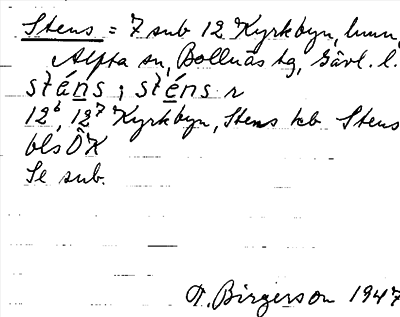 Stens = 7 sub 12 Kyrkbyn, hmn,
Alfta sn, Bollnäs tg, Gävl. l.
sténs ; sténs r
12⁶, 12⁷ Kyrkbyn, Stens kb Stens
bls ÖK
Se sub.
Birgerson 1947